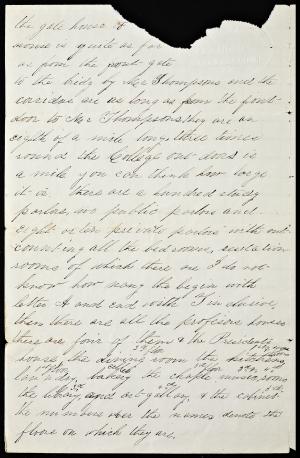 the gate house &
house is quite as far
as from the front gate
to the bridge by Mr Thompsons and the
corridors are as long as from the front
door to Mr Thompsons they are an
eighth of a mile long three times
round the College out doors is
a mile you can think how large
it is. there are a hundred study
parlors, two public parlors and
eight or ten private parlors without
counting all the bed rooms, recitation
rooms of which there are I do not
know how many they begin with
letter A and end with T inclusive
then there are all the professors houses
there are four of them & the Presidents
house, the dining room the kitchens,
laundry, bakery the chapel music rooms
the library and art gallery, & the cabinet
the numbers over the names denote the
floors on which they are.